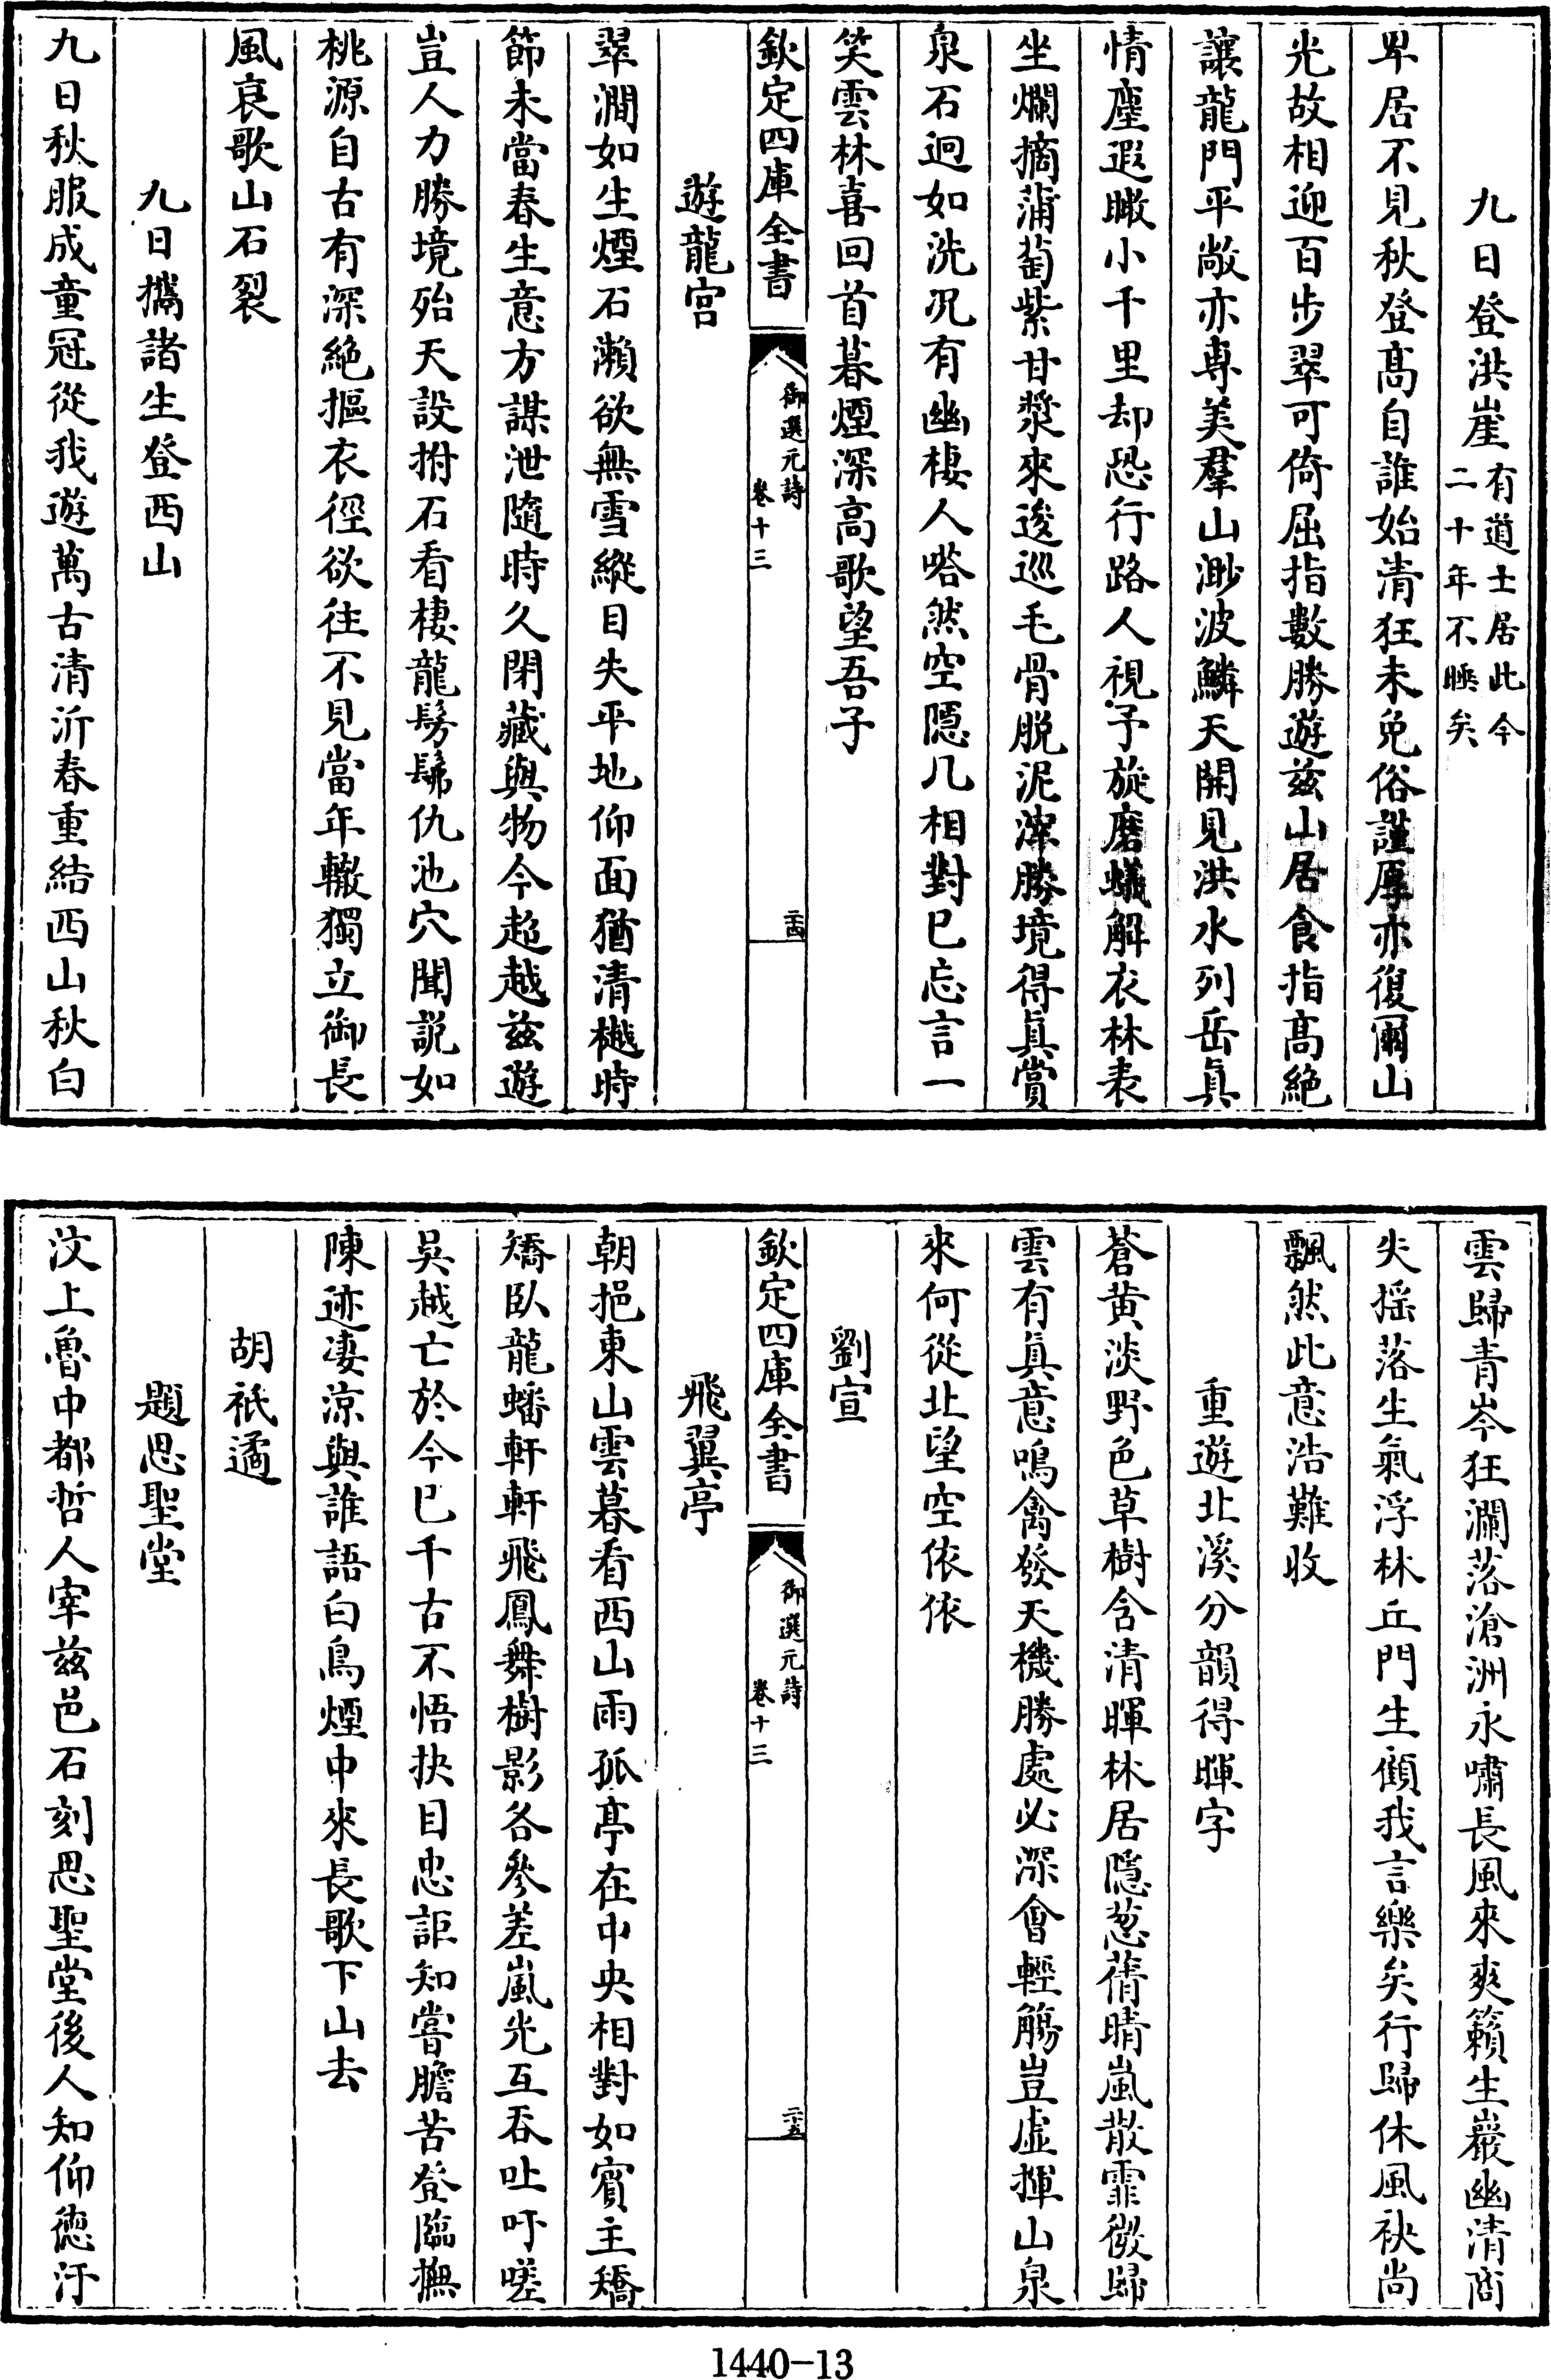 九日登洪崖有道士居此今
二十年不睡矣
卑居不見秋登髙自誰始清狂未免俗謹厚亦復爾山
光故相迎百步翠可倚屈指數勝遊兹山居食指髙絶
讓龍門平敞亦専美羣山渺波鱗天開見洪水列岳真
情塵遐瞰小千里却恐行路人視予旋磨蟻解衣林表
坐爛摘蒲萄紫甘漿來逡巡毛骨脱泥滓勝境得真賞
泉石迥如洗况有幽棲人嗒然空隠几相對已忘言一
笑雲林喜回首暮煙深高歌望吾子
欽定四庫全書
御選元詩
卷十三
二十四
遊龍宫
翠澗如生煙石瀨欲無雪縱目失平地仰面猶清樾時
節未當春生意方謀泄隨時久閉藏與物今超越兹遊
豈人力勝境殆天設拊石看棲龍髣髴仇池穴聞説如
桃源自古有深絶摳衣徑欲往不見當年轍獨立御長
風哀歌山石裂
九日攜諸生登西山
九日秋服成童冠從我遊萬古清沂春重結西山秋白
雲歸青岑狂瀾落滄洲永嘯長風來爽籟生巖幽清商
失揺落生氣浮林丘門生顧我言樂矣行歸休風袂尚
飄然此意浩難收
重遊北溪分韻得暉字
蒼黄淡野色草樹含清暉林居隠葱蒨晴嵐散霏微歸
雲有真意鳴禽發天機勝處必深會輕觴豈虚揮山泉
來何從北望空依依
劉宣
欽定四庫全書
御選元詩
卷十三
二十五
飛翼亭
朝挹東山雲暮看西山雨孤亭在中央相對如賓主矯
矯臥龍蟠軒軒飛鳳舞樹影各參差嵐光互吞吐吁嗟
吳越亡於今已千古不悟抉目忠詎知嘗膽苦登臨撫
陳迹淒涼與誰語白鳥煙中來長歌下山去
胡祗遹
題思聖堂
汶上魯中都哲人宰兹邑石刻思聖堂後人知仰德汙
1440-13